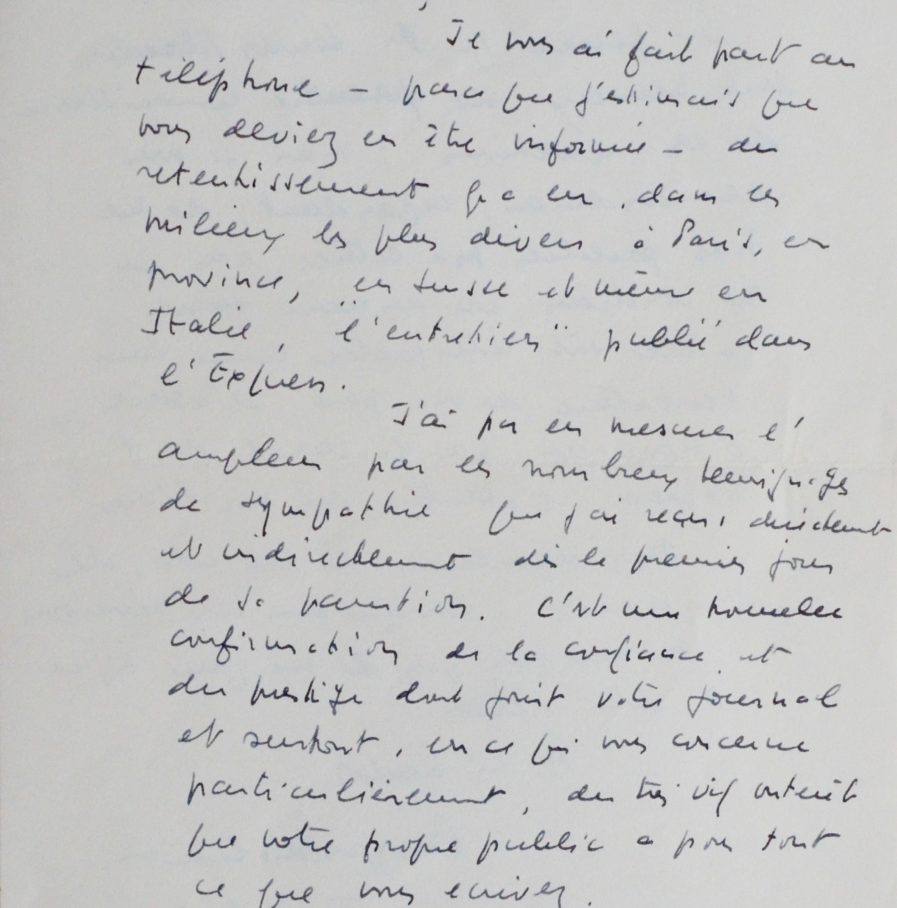 Je vous ai fait part au
téléphone — parce que j'estimais que
vous deviez en être informée — du
retentissement qu'a eu, dans les
milieux les plus divers à Paris, en
province, en Suisse et même en
Italie, "l'entretien" publié dans
l'Express.
J'ai pu en mesurer l'
ampleur par les nombreux temoignages
de sympathie que j'ai reçus directement
et indirectement dès le premier jour
de sa parution. C'est une nouvelle
confirmation de la confiance et
du prestige dont jouit votre journal
et surtout, en ce qui vous concerne
particulièrement, du très vif intérêt
que votre propre public a pour tout
ce que vous écrivez.